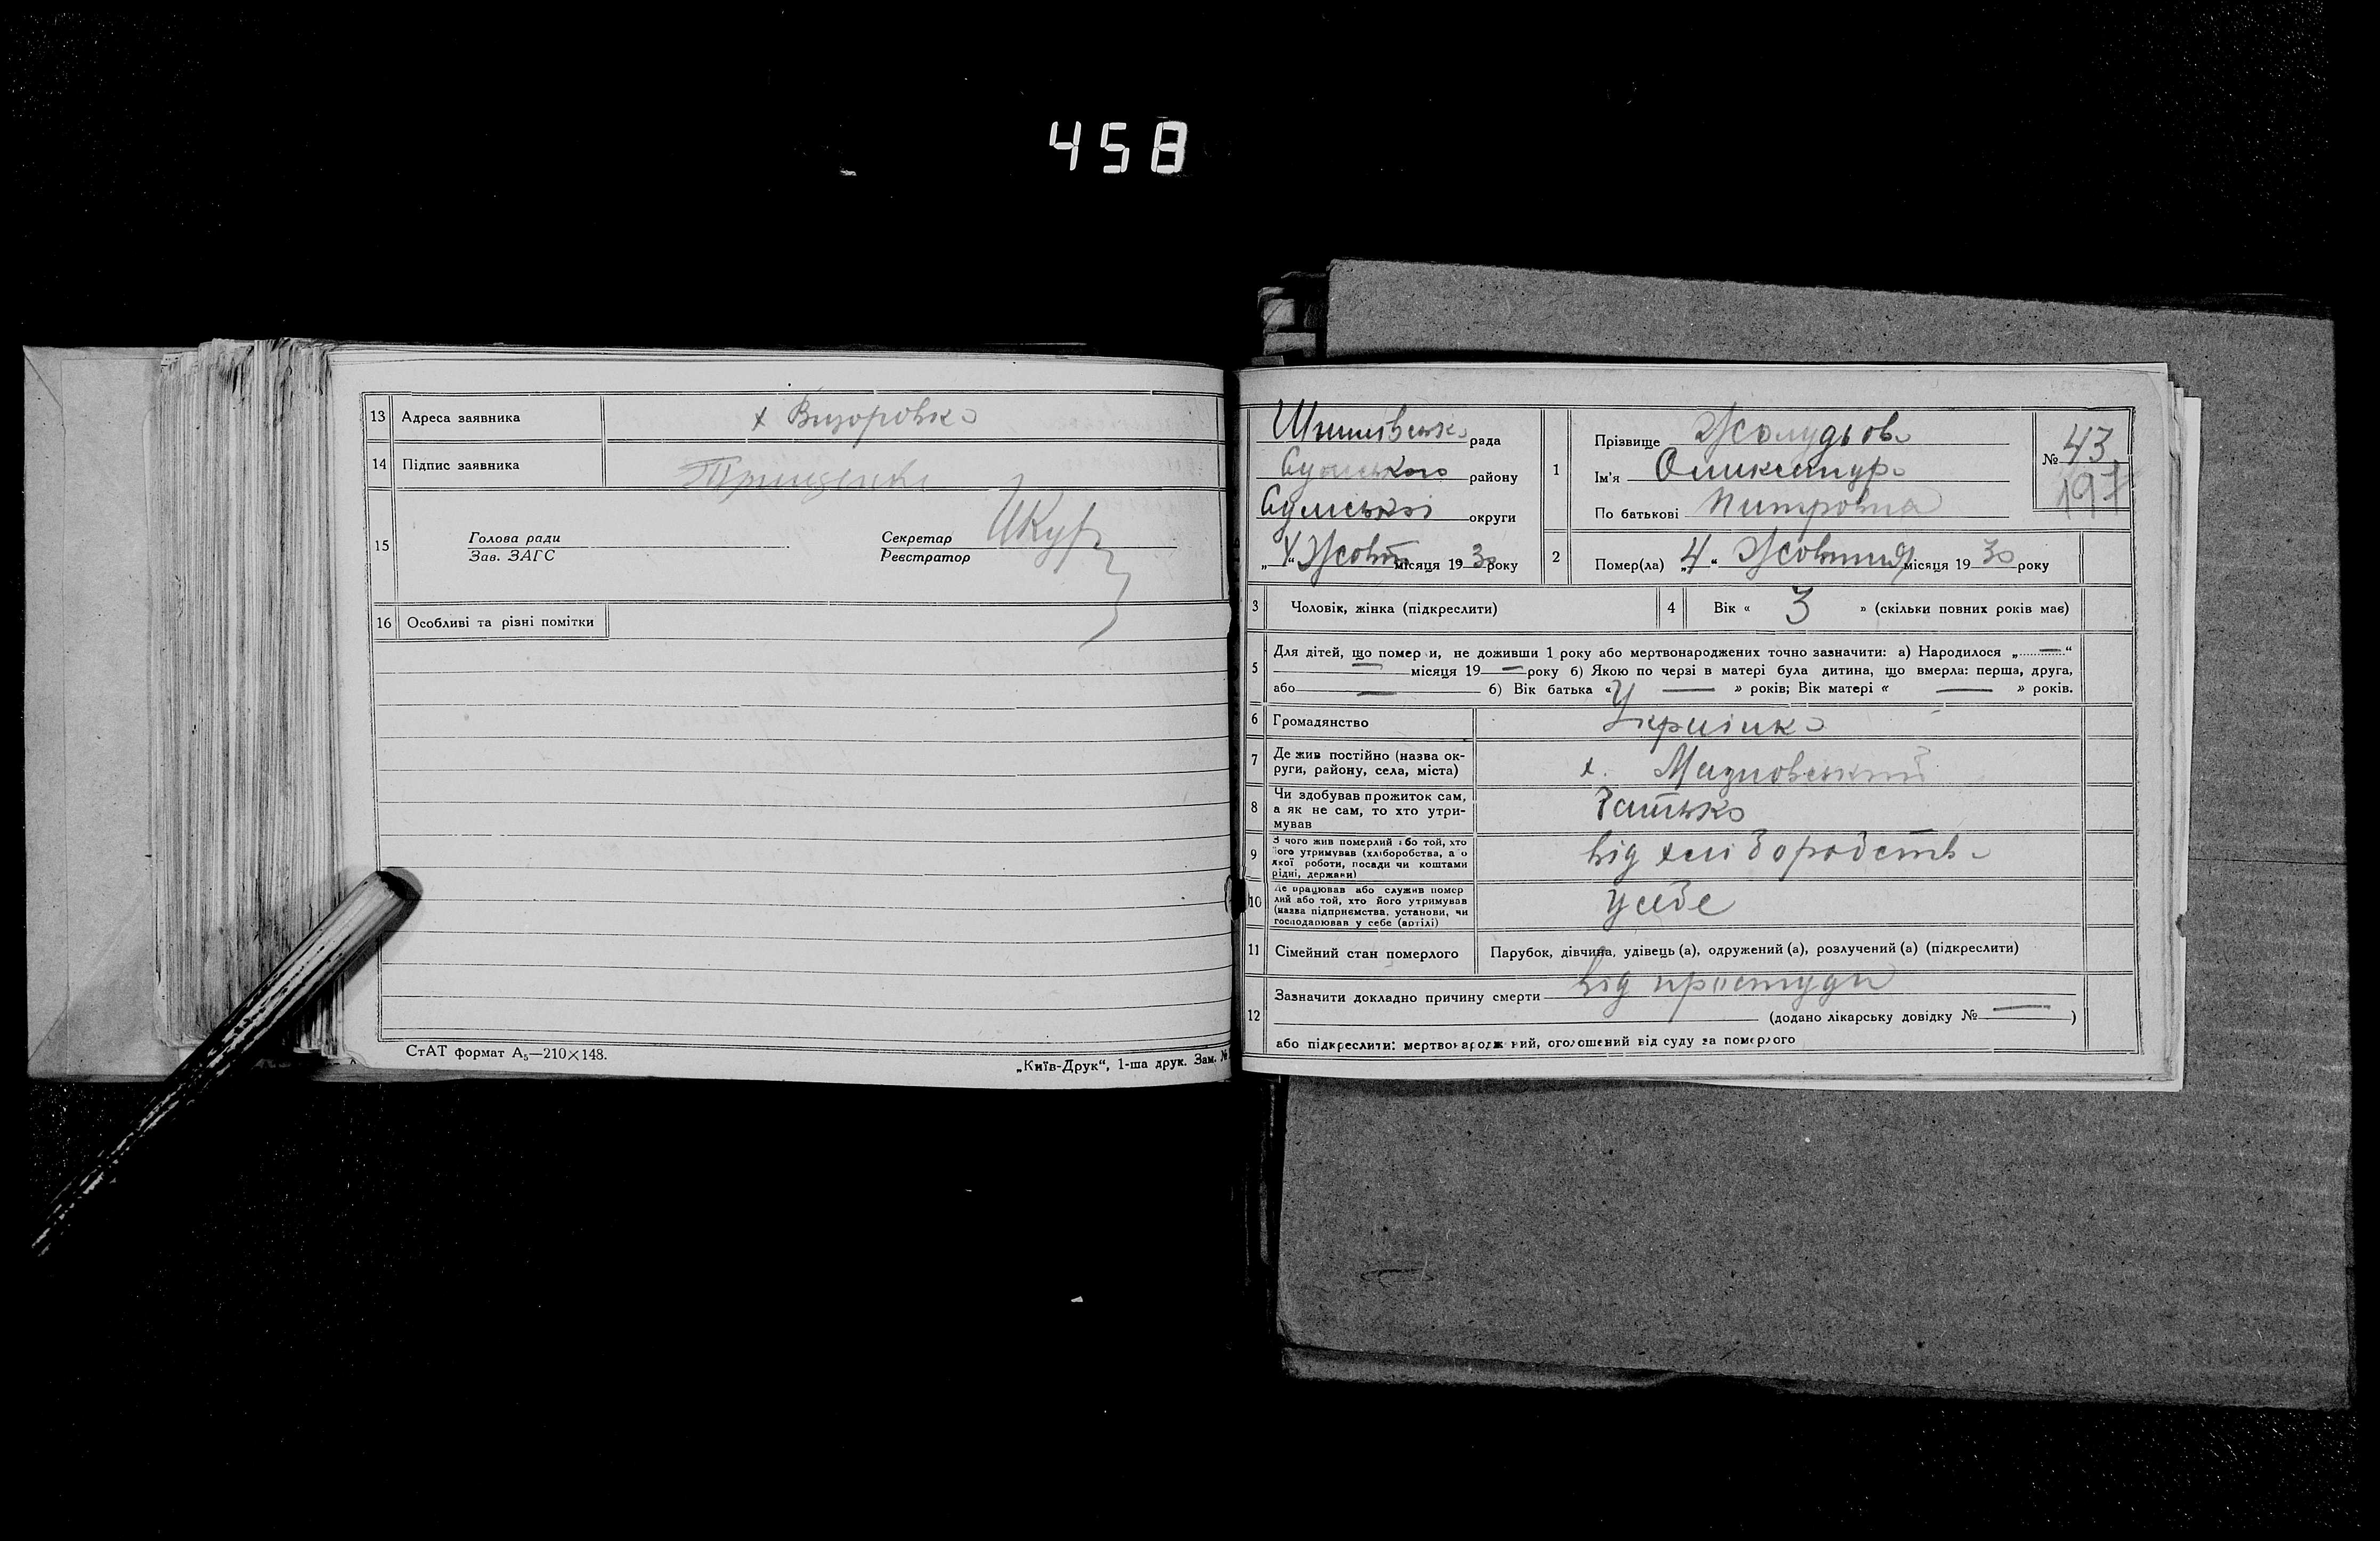 458
13 Адреса заявника х Визоровка
14 Підпис заявника
15 Голова ради
Зав. ЗАГС
Секретар
Реєстратор
16 Особливі та різні помітки
СтАТ формат А₅—210×148.
„Київ-Друк“, 1-ша друк. Зам. №
рада
Сумського району
Сумської округи
„4“ Жовт місяця 1930 року
1 Прізвище Жолудьова
Ім'я
По батькові Питровна
№ 43
197
2 Помер(ла) „4“ Жовтня місяця 1930 року
3 Чоловік, жінка (підкреслити)
4 Вік « 3 » (скільки повних років має)
5 Для дітей, що померли, не доживши 1 року або мертвонароджених точно зазначити: а) Народилося „—“
— місяця 19 — року б) Якою по черзі в матері була дитина, що вмерла: перша, друга,
або — б) Вік батька « — » років; Вік матері « — » років.
6 Громадянство Українка
7 Де жив постійно (назва ок-
руги, району, села, міста) х.
8 Чи здобував прожиток сам,
а як не сам, то хто утри-
мував батько
9 З чого жив померлий або той, хто
його утримував (хліборобства, а о
якої роботи, посади чи коштами
рідні, держави) від хліборобства
10 Де працював або служив помер
лий або той, хто його утримував
(назва підприємства, установи, чи
господарював у себе (артілі) у себе
11 Сімейний стан померлого Парубок, дівчина, удівець (а), одружений (а), розлучений (а) (підкреслити)
12 Зазначити докладно причину смерти від простуди
(додано лікарську довідку № — )
або підкреслити: мертвонароджений, оголошений від суду за померлого